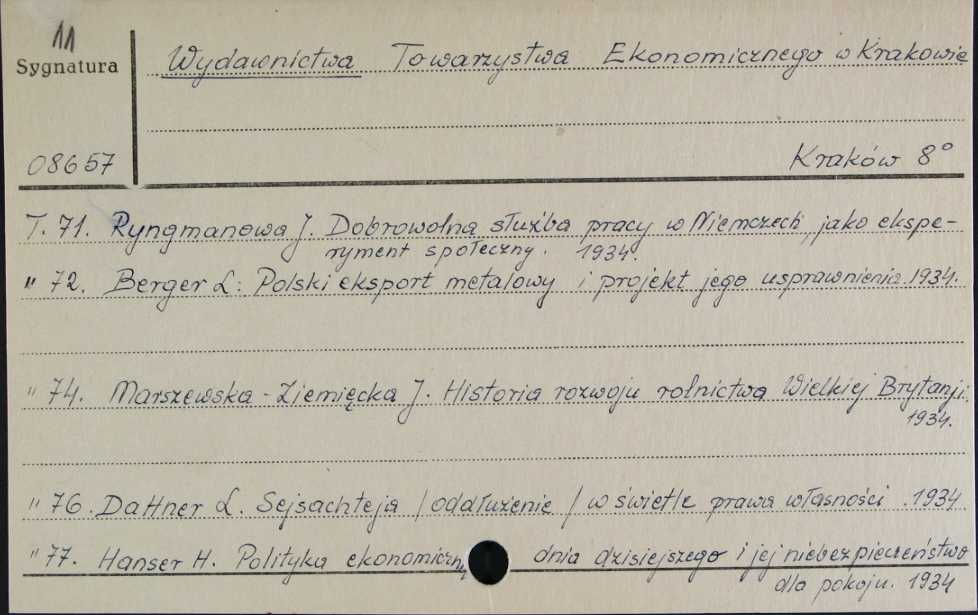 11
Sygnatura
Wydawnictwa Towarzystwa Ekonomicznego w Krakowie
08657
Kraków 8°
T. 71. Ryngmanowa J. Dobrowolna służba pracy w Niemczech, jako ekspe-
ryment społeczny. 1934.
" 72. Berger L: Polski eksport metalowy i projekt jego usprawnienia. 1934.
" 74. Marszewska-Ziemięcka J. Historia rozwoju rolnictwa Wielkiej Brytanji.
1934.
" 76. Dattner L. Sejsachteja /oddłużenie/ w świetle prawa własności. 1934
" 77. Hanser H. Polityka ekonomiczna dnia dzisiejszego i jej niebezpieczeństwo
dla pokoju. 1934